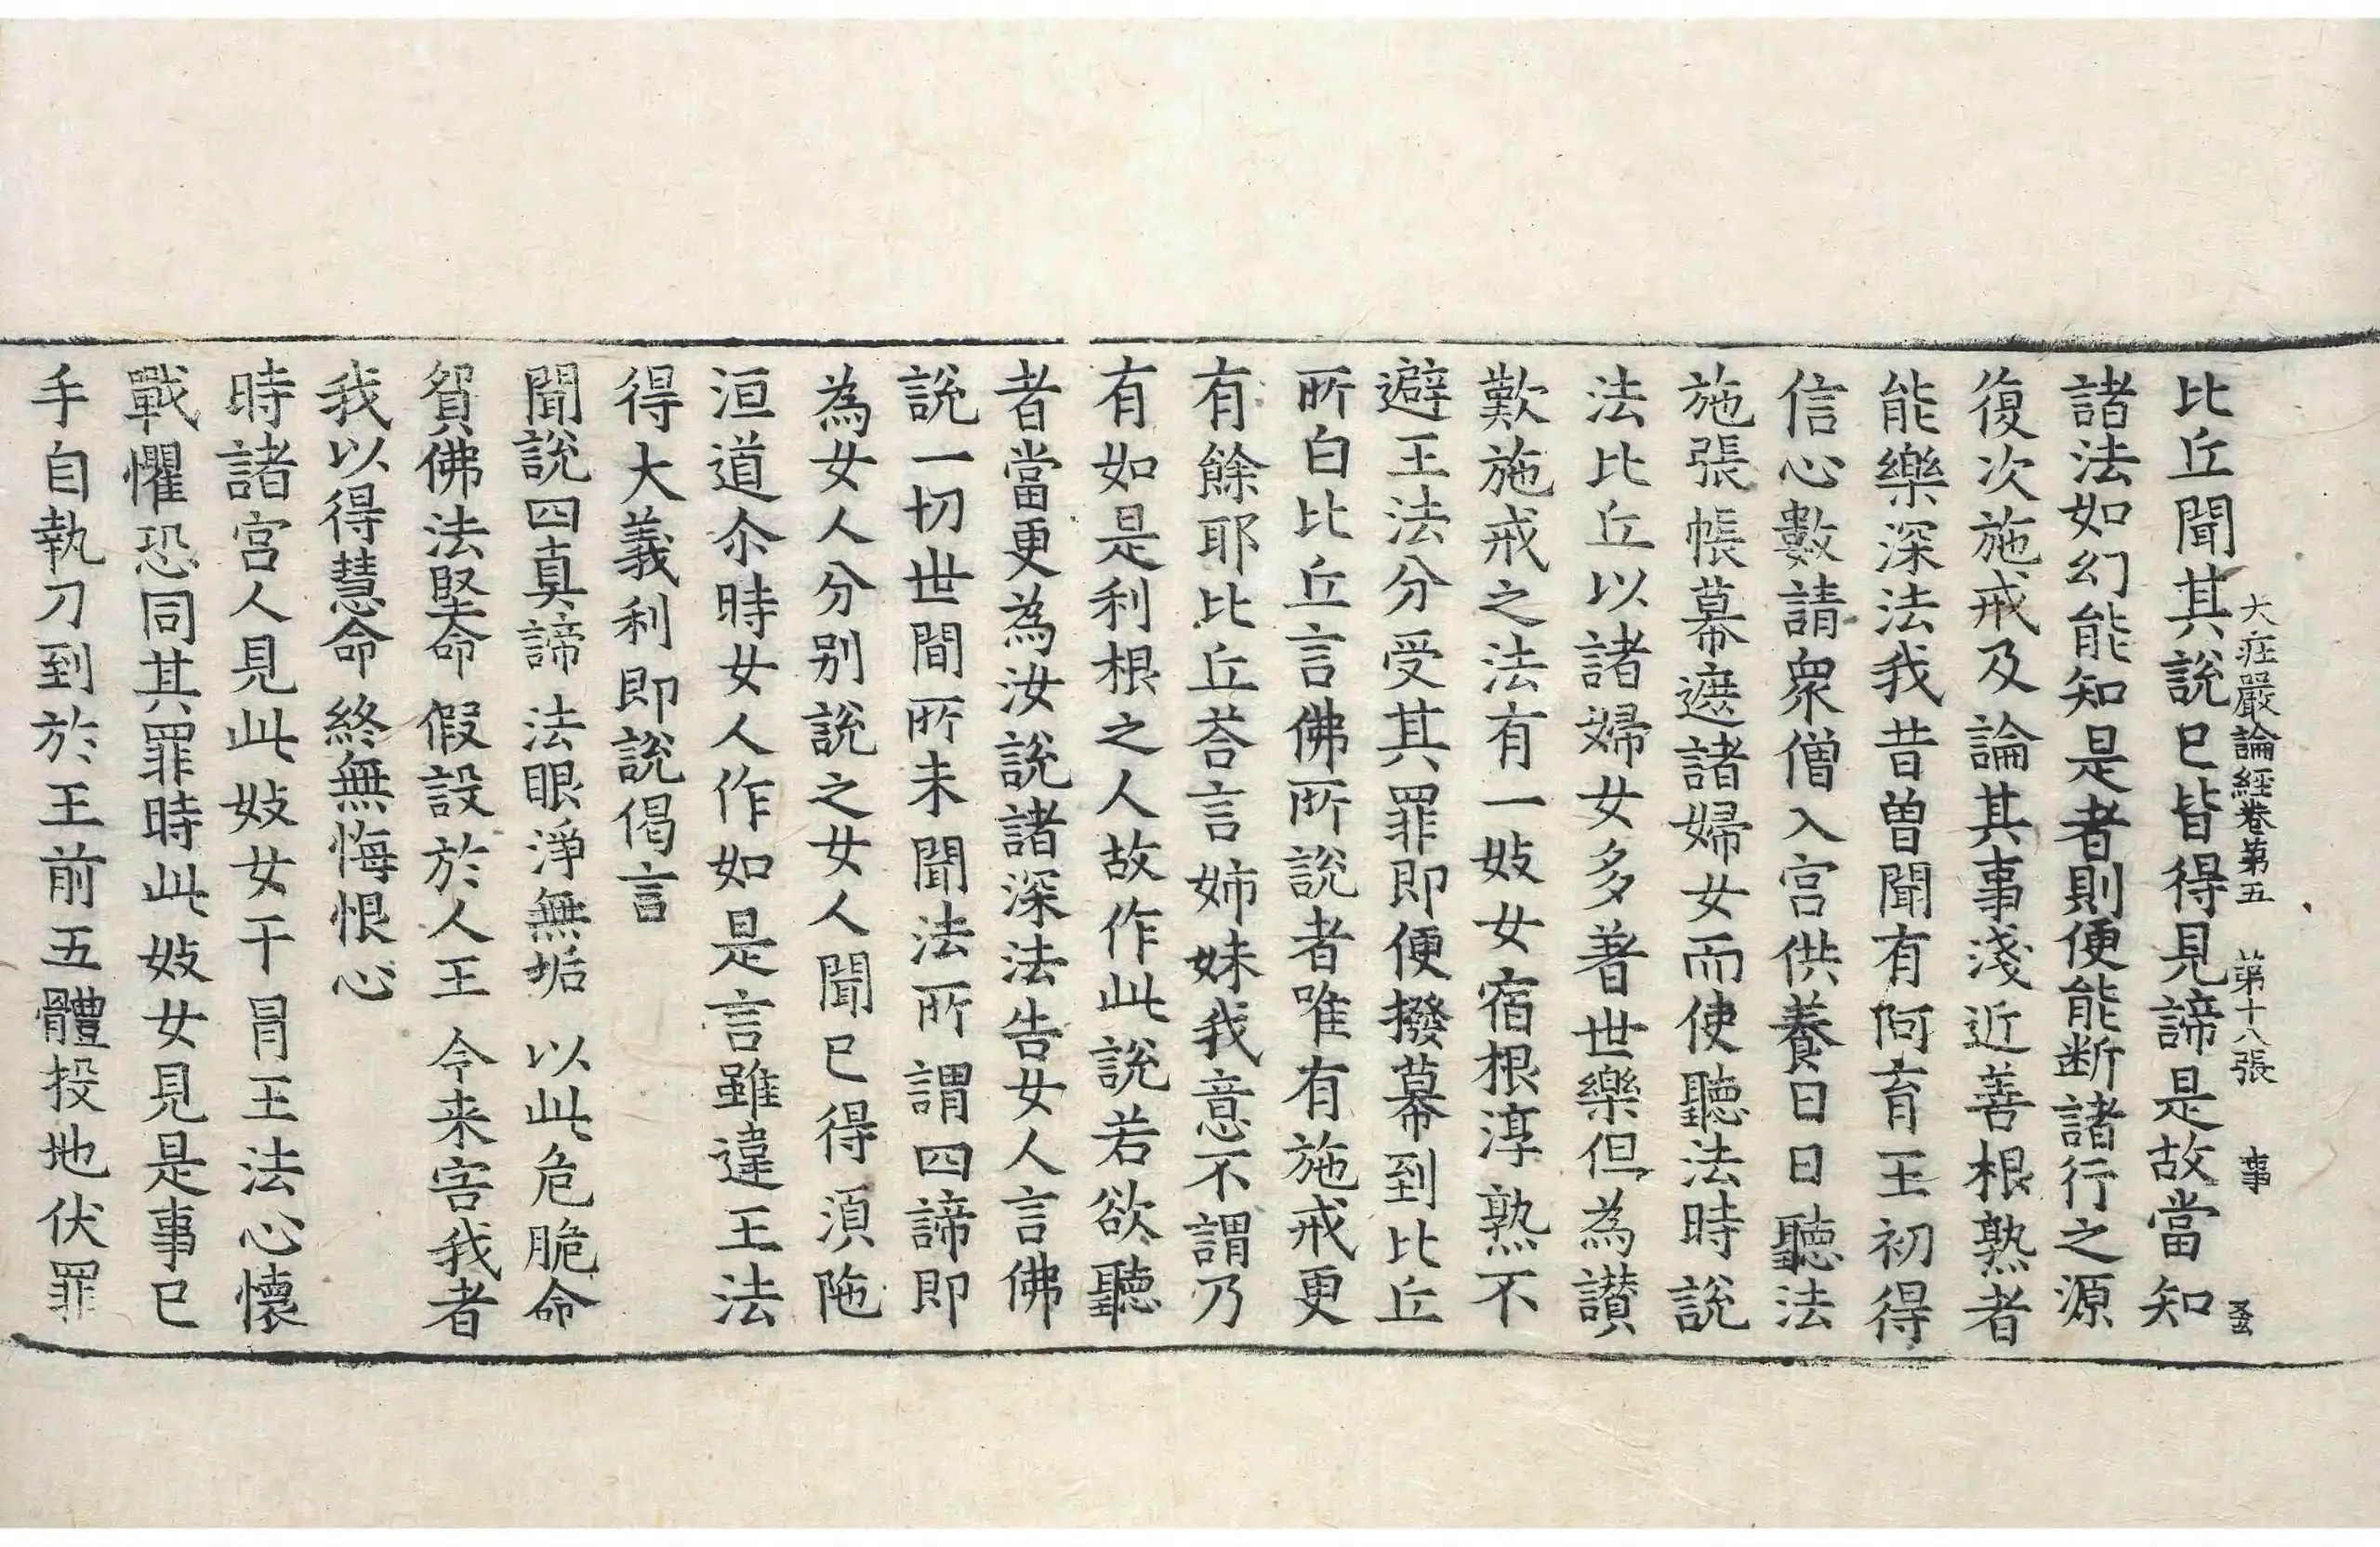 大莊嚴論經卷第五 第十八張 事
比丘聞其說已皆得見諦是故當知
諸法如幻能知是者則便能断諸行之源
復次施戒及論其事淺近善根熟者
能樂深法我昔曽聞有阿育王初得
信心數請衆僧入宫供養日日聽法
施張帳幕遮諸婦女而使聽法時說
法比丘以諸婦女多著世樂但為讃
歎施戒之法有一妓女宿根淳熟不
避王法分受其罪即便撥幕到比丘
所白比丘言佛所說者唯有施戒更
有餘耶比丘荅言姉妹我意不謂乃
有如是利根之人故作此說若欲聽
者當更為汝說諸深法告女人言佛
說一切世間所未聞法所謂四諦即
為女人分别說之女人聞已得須陁
洹道尒時女人作如是言雖違王法
得大義利即說偈言
聞說四真諦 法眼淨無垢 以此危脆命
貿佛法堅命 假設於人王 今来害我者
我以得慧命 終無悔恨心
時諸宫人見此妓女干冐王法心懷
戰懼恐同其罪時此妓女見是事已
手自執刀到於王前五體投地伏罪